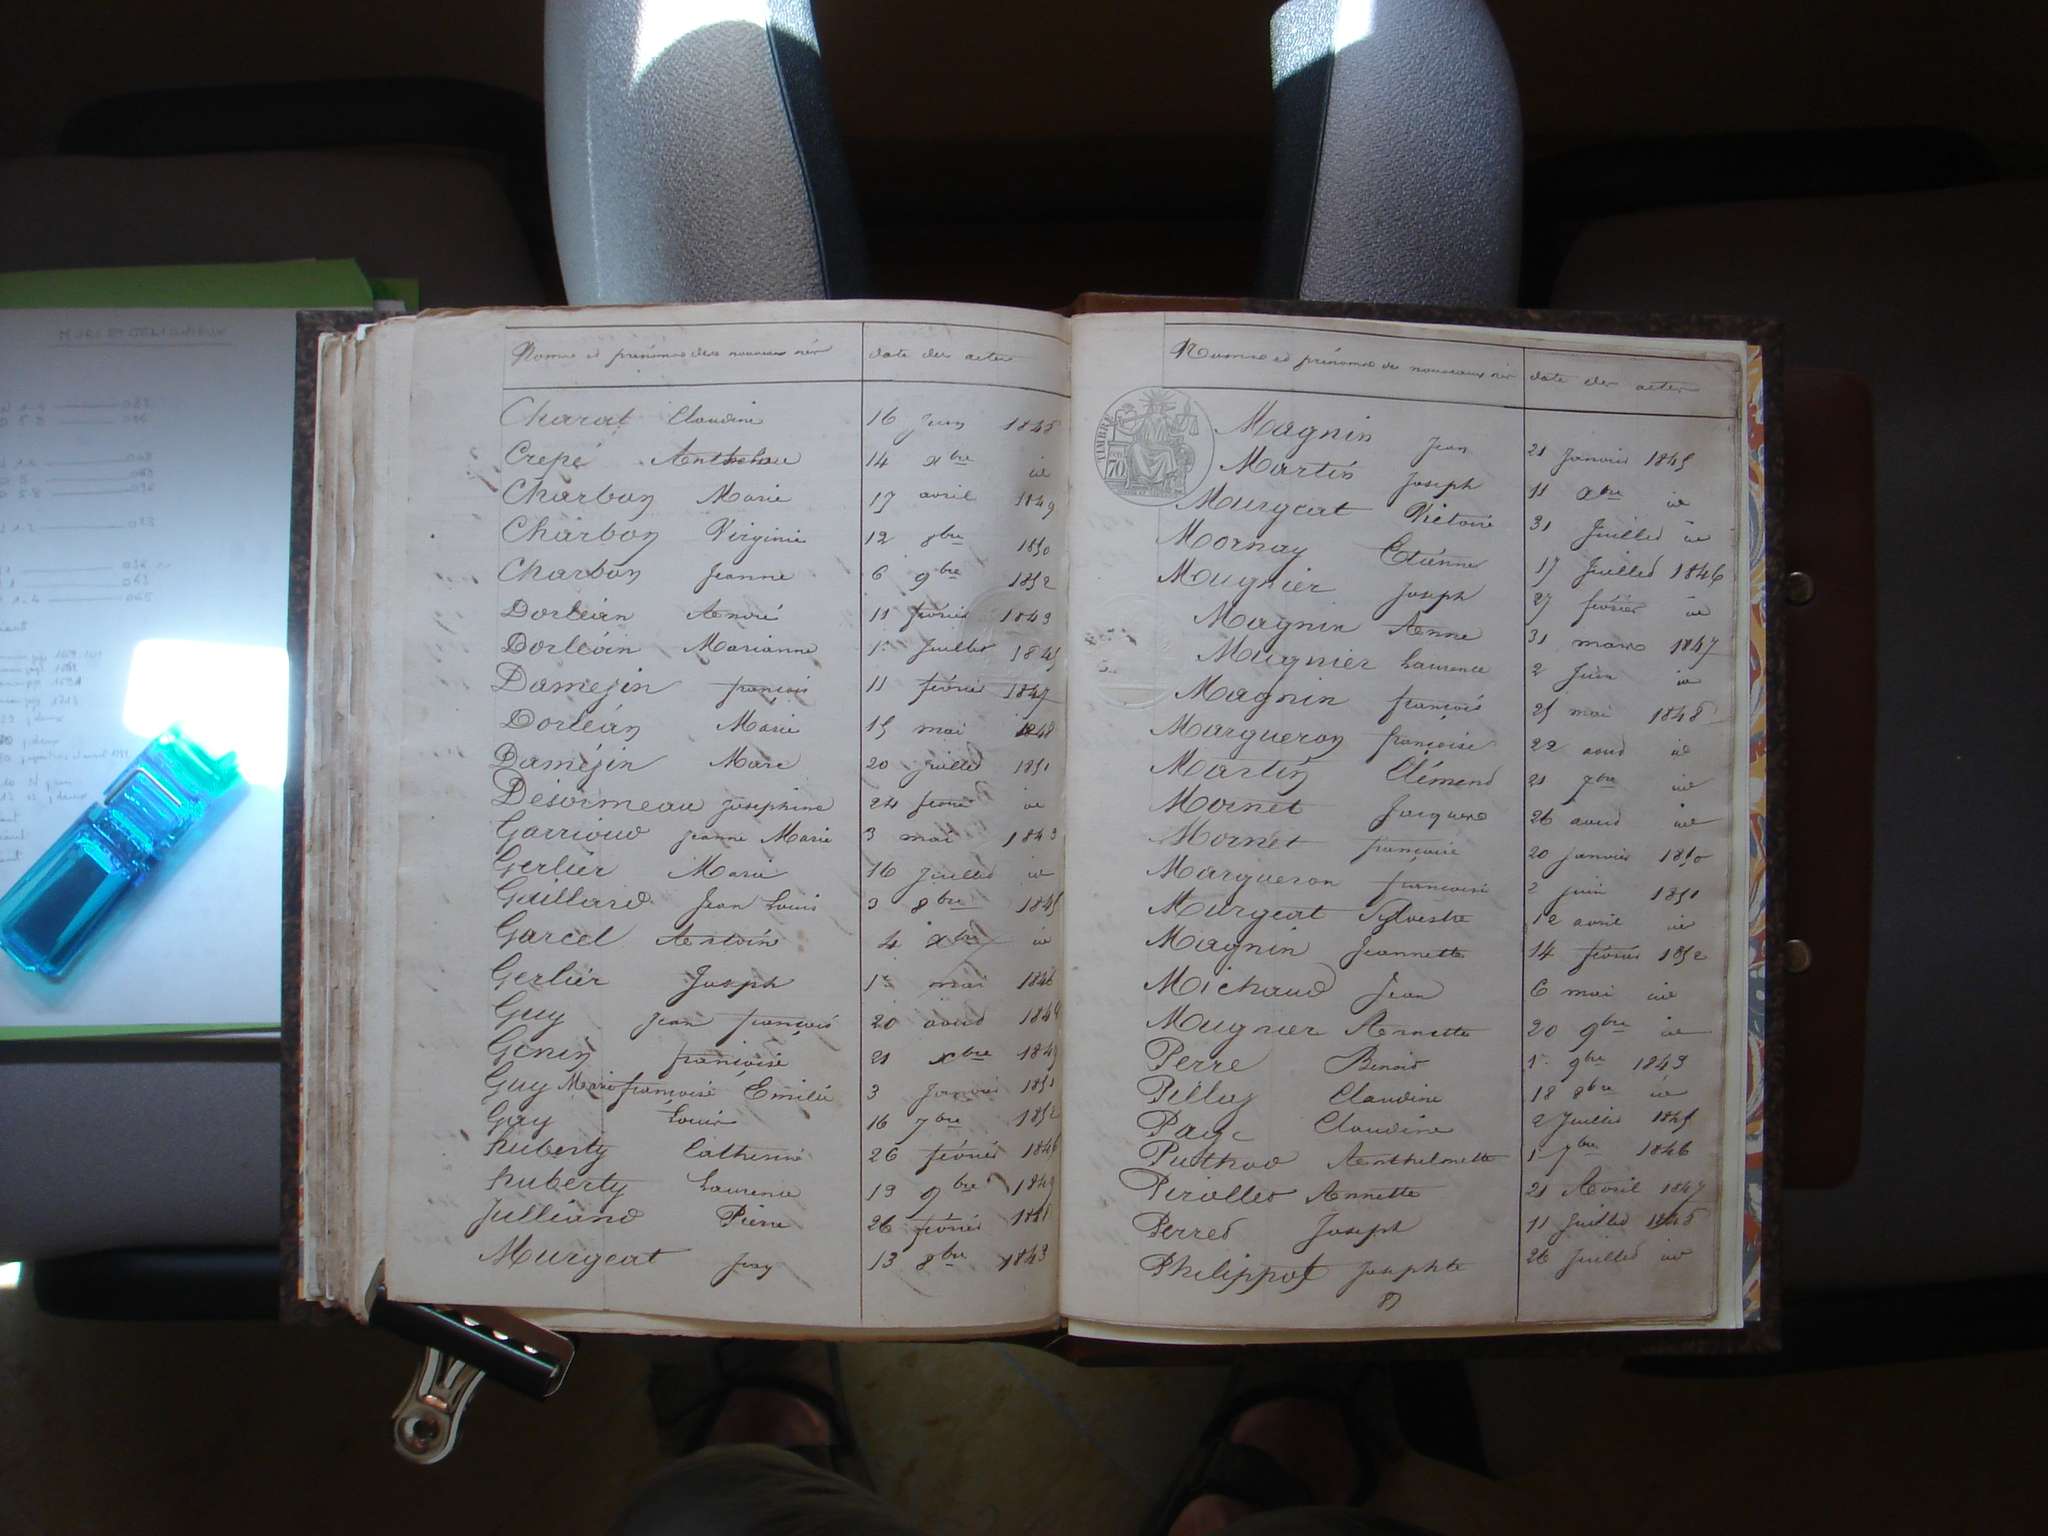 Noms et prénoms des nouveaux nés date des actes
Charat Claudine 16 Juin 1845
Crepé 14 xbre id
Charbon Marie 17 avril 1849
Charbon Virginie 12 8bre 1850
Charbon Jeanne 6 9bre 1852
Dorléan André 11 février 1843
Dorléan Marianne 1er Juillet 1845
Damejin françois 11 février 1847
Dorléan Marie 15 mai 1848
Daméjin Marc 20 juillet 1851
Désormeau josephine 24 id
Garrioud jeanne Marie 3 mai 1843
Gerlier Marie 16 Juillet id
Guillard Jean Louis 3 8bre 1845
Garcel Antoine 4 xbre id
Gerlier Joseph 1er mai 1846
Guy jean françois 20 aoud
Genin françoise 21 xbre 1849
Guy Marie françoise Emilie 3 Janvier 1851
Guy Louis 16 7bre 1852
huberty Catherine 26 février 1846
huberty Laurence 19 9bre 1849
Julliand Pierre 26 février
Murgeat 13 8bre 1843
Noms et prénoms de nouveaux nés date des actes
TIMBRE
70
Magnin Jean 21 Janvier 1845
Martin Joseph 11 xbre id
Murgeat Victoire 31 Juillet id
Mornay Etiénne 17 Juillet 1846
Mugnier Joseph 27 février id
Magnin Anne 31 mars 1847
Mugnier Laurence 2 Juin id
Magnin françois 25 mai 1848
Margueron françoise 22 aoud id
Martin Clémend 21 7bre id
Mornet Jacques 26 aoud id
Mornet françoise 20 janvier 1850
Margueron françoise 2 juin 1851
Murgeat Sylvestre 12 avril id
Magnin Jeannette 14 février 1852
Michaud Jean 6 mai id
Mugnier Annette 20 9bre id
Perre Benoid 1er 9bre 1843
Pilloy Claudine 18 8bre id
Page Claudine 2 Juillet 1845
Puthod Anthelmette 1er 7bre 1846
Pirolles Annette 21 Avril 1847
Perred Joseph 11 Juillet 1848
Philippot Josephte 26 Juillet id